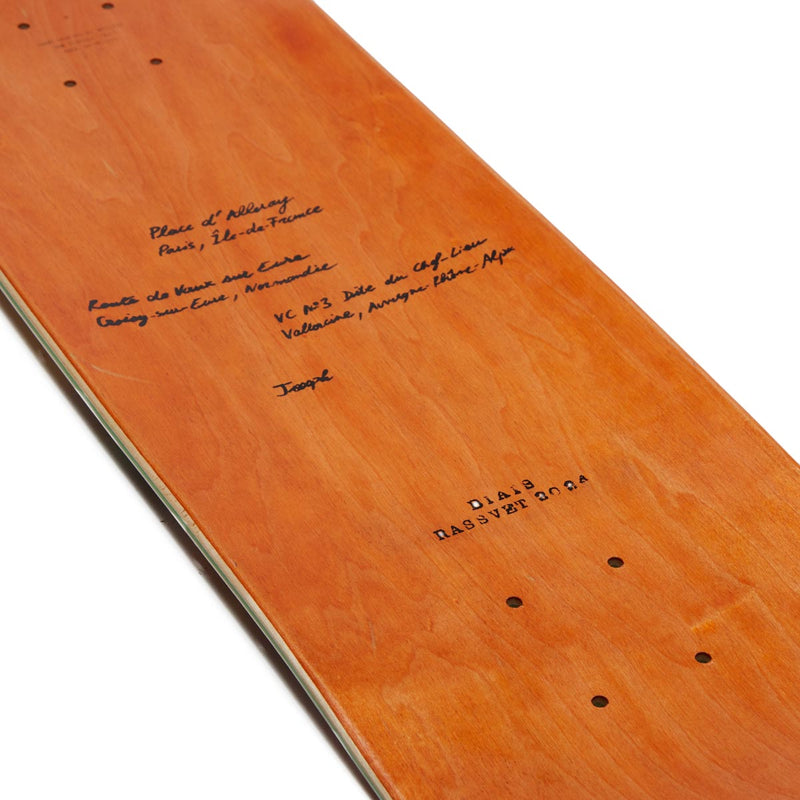 Place d'Alleray
Paris, Île-de-France
Route de Vaux sur Eure
sur-Eure, Normandie
VC N°3 Dite du Chef-Lieu
Vallorcine, Auvergne-Rhône-Alpes
Joseph
BiAiS
RASSVET 2024